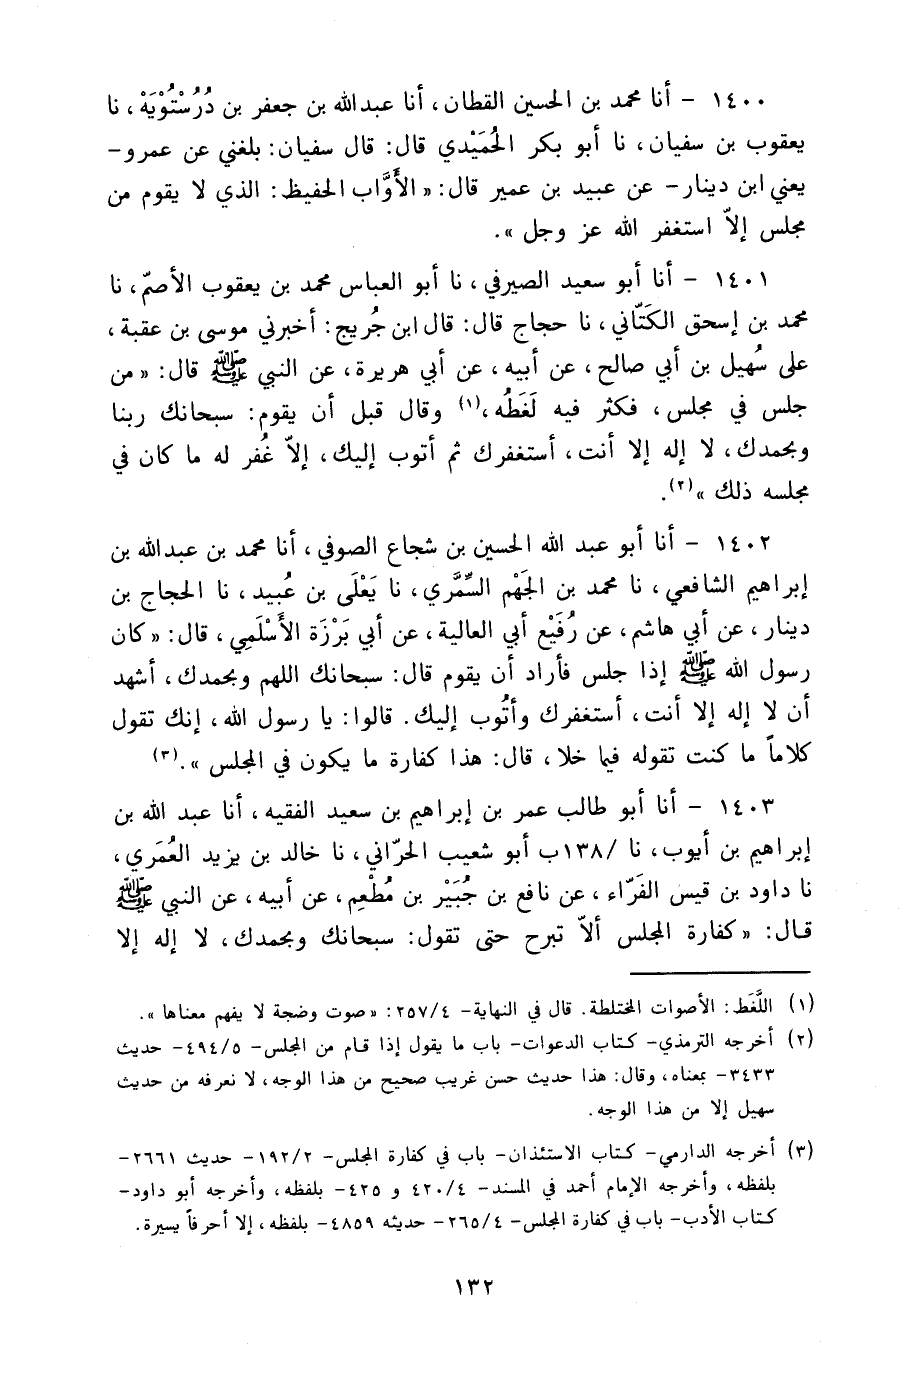 ١٤٠٠ - أنا محمد بن الحسين القطان، أنا عبدالله بن جعفر بن دُرُسْتُوْيَهْ، نا
يعقوب بن سفيان، نا أبو بكر الحُمَيْدي قال: قال سفيان: بلغني عن عمرو-
يعني ابن دينار- عن عبيد بن عمير قال: « الأَوَّاب الحفيظ: الذي لا يقوم من
مجلس إلاّ استغفر الله عز وجل ».
١٤٠١ - أنا أبو سعيد الصيرفي، نا أبو العباس محمد بن يعقوب الأصمّ، نا
محمد بن إسحق الكَتّاني، نا حجاج قال: قال ابن جُريج: أخبرني موسى بن عقبة،
على سُهيل بن أبي صالح، عن أبيه، عن أبي هريرة، عن النبي ﷺ قال: « من
جلس في مجلس، فكثر فيه لَغَطُه،(١) وقال قبل أن يقوم: سبحانك ربنا
وبحمدك، لا إله إلا أنت، أستغفرك ثم أتوب إليك، إلاّ غُفر له ما كان في
مجلسه ذلك »(٢).
١٤٠٢ - أنا أبو عبد الله الحسين بن شجاع الصوفي، أنا محمد بن عبدالله بن
إبراهيم الشافعي، نا محمد بن الجَهْم السِّمَّري، نا يَعْلَى بن عُبيد، نا الحجاج بن
دينار، عن أبي هاشم، عن رُفَيْع أبي العالية، عن أبي بَرْزَة الأَسْلَمِي، قال: « كان
رسول الله ﷺ إذا جلس فأراد أن يقوم قال: سبحانك اللهم وبحمدك، أشهد
أن لا إله إلا أنت، أستغفرك وأتُوب إليك. قالوا: يا رسول الله، إنك تقول
كلاماً ما كنت تقوله فيما خلا، قال: هذا كفارة ما يكون في المجلس ».(٣)
١٤٠٣ - أنا أبو طالب عمر بن إبراهيم بن سعيد الفقيه، أنا عبد الله بن
إبراهيم بن أيوب، نا /١٣٨ب أبو شعيب الحرّاني، نا خالد بن يزيد العُمَري،
نا داود بن قيس الفَرّاء، عن نافع بن جُبَيْر بن مُطْعِم، عن أبيه، عن النبي ﷺ
قال: « كفارة المجلس ألاّ تبرح حتى تقول: سبحانك وبحمدك، لا إله إلا
(١) اللَّغَط: الأصوات المختلطة. قال في النهاية- ٢٥٧/٤: « صوت وضجة لا يفهم معناها ».
(٢) أخرجه الترمذي- كتاب الدعوات- باب ما يقول إذا قام من المجلس- ٤٩٤/٥- حديث
٣٤٣٣- بمعناه، وقال: هذا حديث حسن غريب صحيح من هذا الوجه، لا نعرفه من حديث
سهيل إلا من هذا الوجه.
(٣) أخرجه الدارمي- كتاب الاستئذان- باب في كفارة المجلس- ١٩٢/٢- حديث ٢٦٦١-
بلفظه، وأخرجه الإمام أحمد في المسند- ٤٢٠/٤ و ٤٢٥- بلفظه، وأخرجه أبو داود-
كتاب الأدب- باب في كفارة المجلس- ٢٦٥/٤- حديثه ٤٨٥٩- بلفظه، إلا أحرفاً يسيرة.
١٣٢